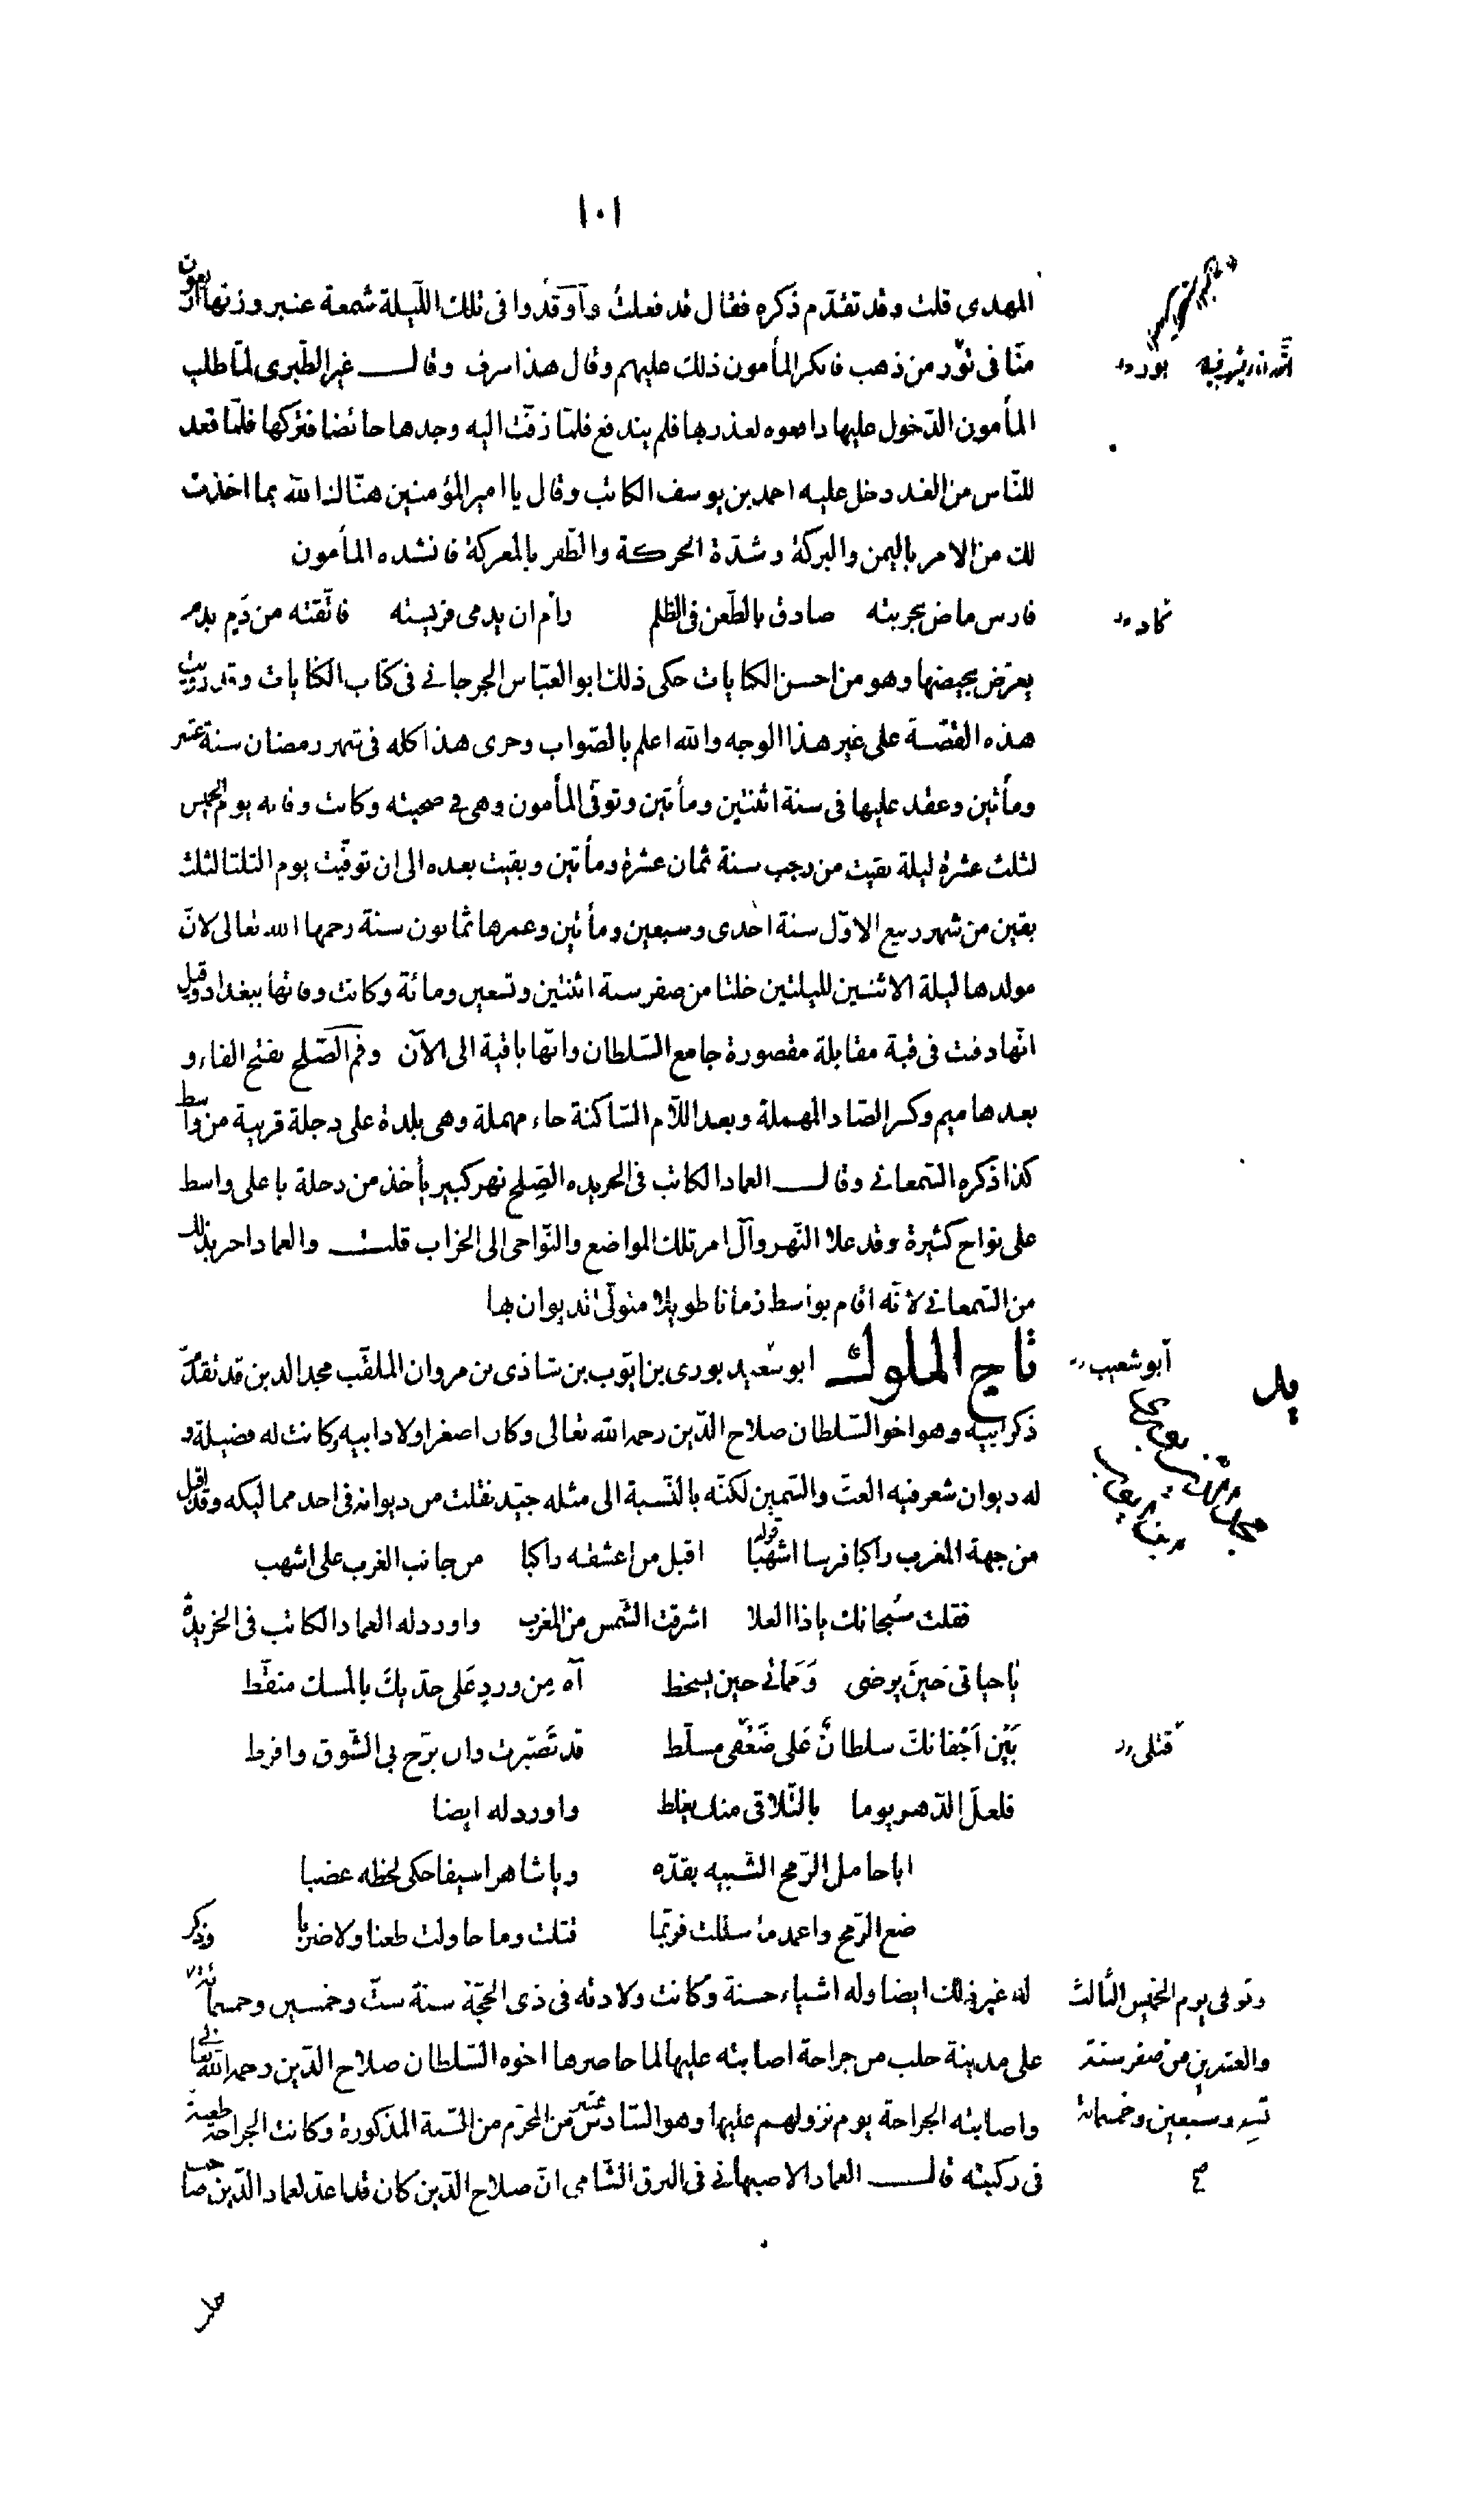 ١٠١
المهدى قلت وقد تقدّم ذكره فقال قد فعلتُ وآوقدوا فى تلك اللّيلة شمعة عنبر وزنها اربعون
منّا فى توّر من ذهب فانكر المأمون ذلك عليهم وقال هذا سرف وقال غير الطّبرى لمّا طلب
المأمون الدّخول عليها دافعوه لعذر بها فلم يندفع فلمّا زفّت اليه وجدها حائضا فتركها فلمّا قعد
للنّاس من الغد دخل عليه احمد بن يوسف الكاتب وقال يا امير المؤمنين هنّاك الله بما اخذت
لك من الامر باليمن والبركة وشدّة الحركة والظّفر بالمعركة فانشده المأمون
فارس ماض بحربته صادق بالطّعن فى الظلم رام ان يدمى فريسته فاتّقته من دَم بدم
كاد
يعرّض بحيضها وهو من احسن الكنايات حكى ذلك ابو العبّاس الجرجانى فى كتاب الكنايات وقد رويت
هذه القصّة على غير هذا الوجه والله اعلم بالصّواب وجرى هذا كله فى شهر رمضان سنة عشر
ومأتين وعقد عليها فى سنة اثنتين ومأتين وتوفّى المأمون وهى فى صحبته وكانت وفاته يوم الخميس
لثلث عشرة ليلة بقيت من رجب سنة ثمان عشرة ومأتين وبقيت بعده الى ان توفّيت يوم الثلثا لثلث
بقين من شهر ربيع الاوّل سنة احدى وسبعين ومأتين وعمرها ثمانون سنة رحمها الله تعالى لانّ
مولدها ليلة الاثنين لليلتين خلتا من صفر سنة اثنتين وتسعين ومائة وكانت وفاتها ببغداد وقيل
انّها دفنت فى قبة مقابلة مقصورة جامع السّلطان وانّها باقية الى الآن وفم الصّلح بفتح الفاء و
بعدها ميم وكسر الصّاد المهملة وبعد اللّام السّاكنة حاء مهملة وهى بلدة على دجلة قريبة من واسط
كذا ذكره السّمعانى وقال العماد الكاتب فى الخريده الصِّلح نهر كبير يأخذ من دجلة باعلى واسط
على نواح كثيرة وقد علا النّهر وآل امر تلك المواضع والنّواحى الى الخراب قلت والعماد اخبر بذلك
من السّمعانى لانّه اقام بواسط زمانا طويلا متولّى الديوان بها
تاج الملوك ابو سعيد بورى بن ايّوب بن شاذى بن مروان الملقّب مجد الدين قد تقدّم
أبو شعيب
ذكر ابيه وهو اخو السّلطان صلاح الدّين رحمه الله تعالى وكان اصغر اولاد ابيه وكانت له فضيلة و
له ديوان شعر فيه الغثّ والسّمين لكنّه بالنّسبة الى مثله جيّد نقلت من ديوانه فى احد مماليكه وقد اقبل
من جهة المغرب راكبا فرسا اشهبا قوله اقبل من اعشقه راكبا من جانب الغرب على اشهب
فقلت سُبحانك ياذا العلا اشرقت الشّمس من المغرب واورد له العماد الكاتب فى الخريدة
يا حياتى حَينَ يرضى وَمَماتى حين يسخط آه مِن وردٍ عَلى خدّيك بالمسك منقّط
بَيْن اَجْفانك سلطانٌ عَلى ضَعْفى مسلّط قد تَصَبّرت وان برّح بى الشّوق وافرط
قتلى
فلعلّ الدّهر يوما بالتّلاقى منك يغلط واورد له ايضا
ايا حامل الرّمح الشّبيه بقدّه ويا شاهرا سيفا حكى لحظه عضبا
ضع الرّمح واغمد ما سللت فربّما قتلت وما حاولت طعنا ولا ضربا وذكر
له غير ذلك ايضا وله اشياء حسنة وكانت ولادته فى ذى الحجّة سنة ستّ وخمسين وخمسمائة
وتوفى يوم الخميس الثالث
على مدينة حلب من جراحة اصابته عليها لما حاصرها اخوه السّلطان صلاح الدّين رحمه الله تعالى
والعشرين من صفر سنة
واصابته الجراحة يوم نزولهم عليها وهو السّادس عشر من المحرّم من السّنة المذكورة وكانت الجراحة طعنة
تسع وسبعين وخمسمائة
فى ركبته قال العماد الاصبهانى فى البرق الشّامى انّ صلاح الدّين كان قد اعدّ لعماد الدّين صاحب
صح